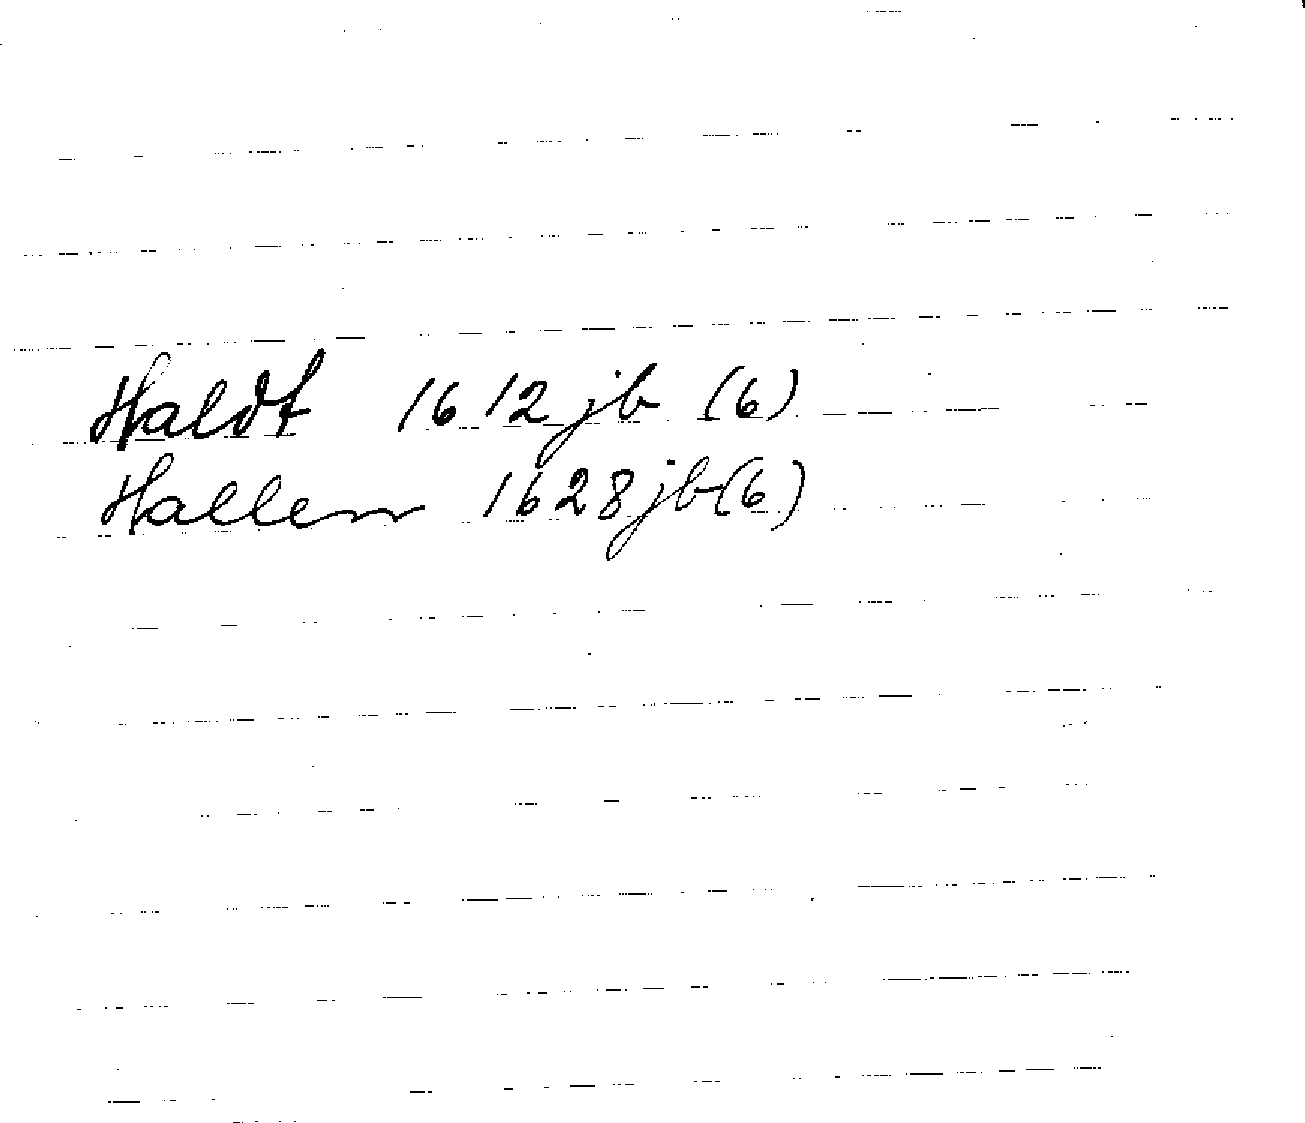 Haldt 1612 jb (6)
Hallem 1628 jb (6)